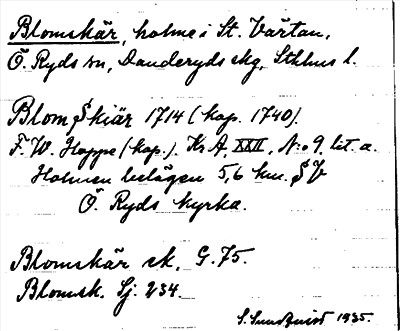 Blomskär, holme i St. Värtan,
Ö. Ryds sn, Danderyds skg, Sthlms l.
Blom Skiär 1714 (kop. 1740).
F. W. Hoppe (kop.). Kr. A. XXII, N:o 9, lit. a.
Holmen belägen 5,6 km. SV
Ö. Ryds kyrka.
Blomskär ek. G. 75.
Blomsk. Sj. 234.
S. Sundquist 1935.